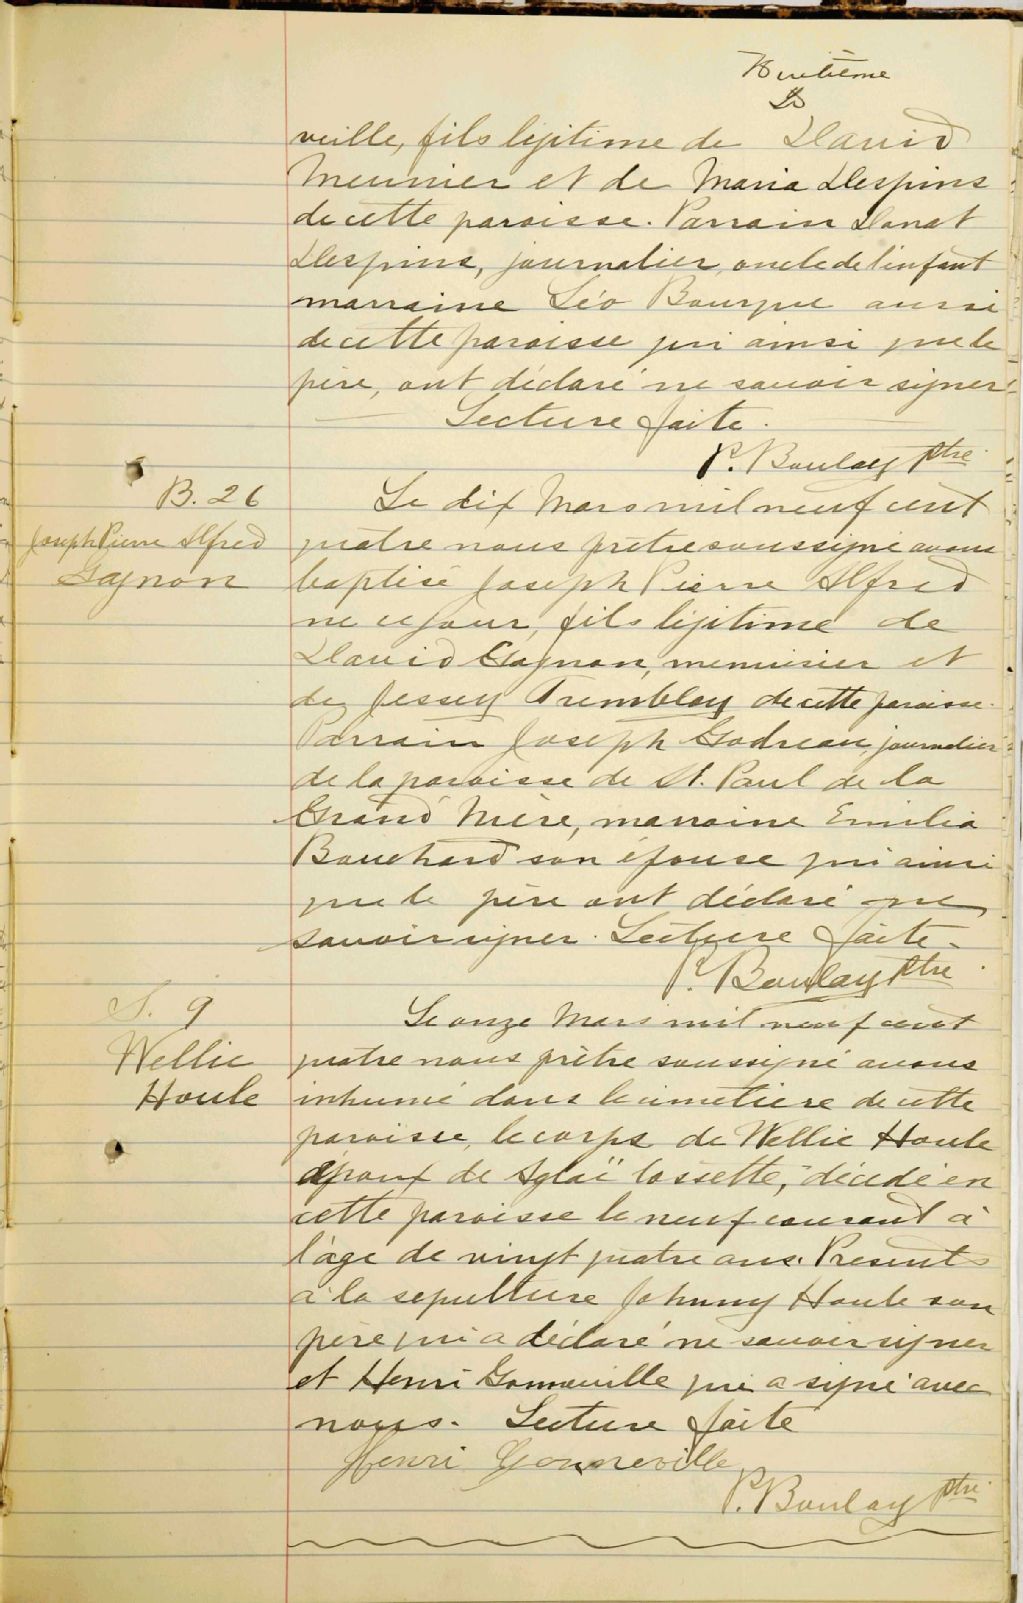 Huitième
veille, fils légitime de David
Meunier et de Maria Despins
de cette paroisse. Parrain Donat
Despins, journalier, oncle de l'enfant
marraine Léo Bourque aussi
de cette paroisse qui ainsi que le
père, ont déclaré ne savoir signer.
Lecture faite.
P. Boulay Ptre.
B. 26
Joseph Pierre Alfred
Gagnon
Le dix Mars mil neuf cent
quatre nous prêtre soussigné avons
baptisé Joseph Pierre Alfred
né ce jour, fils légitime de
David Gagnon, menuisier et
de Jessey Tremblay de cette paroisse.
Parrain Joseph Godreau, journalier
de la paroisse de St. Paul de la
Grand'Mère, marraine Emilia
Bouchard son épouse qui ainsi
que le père ont déclaré ne
savoir signer. Lecture faite.
P. Boulay Ptre.
S. 9
Wellie
Houle
Le onze Mars mil neuf cent
quatre nous prêtre soussigné avons
inhumé dans le cimetière de cette
paroisse, le corps de Wellie Houle
époux de Aglaï Cossette, décédé en
cette paroisse le neuf courant à
l'âge de vingt quatre ans. Présents
à la sépulture Johnny Houle son
père qui a déclaré ne savoir signer
et Henri Gonneville qui a signé avec
nous. Lecture faite
Henri Gonneville
P. Boulay Ptre.